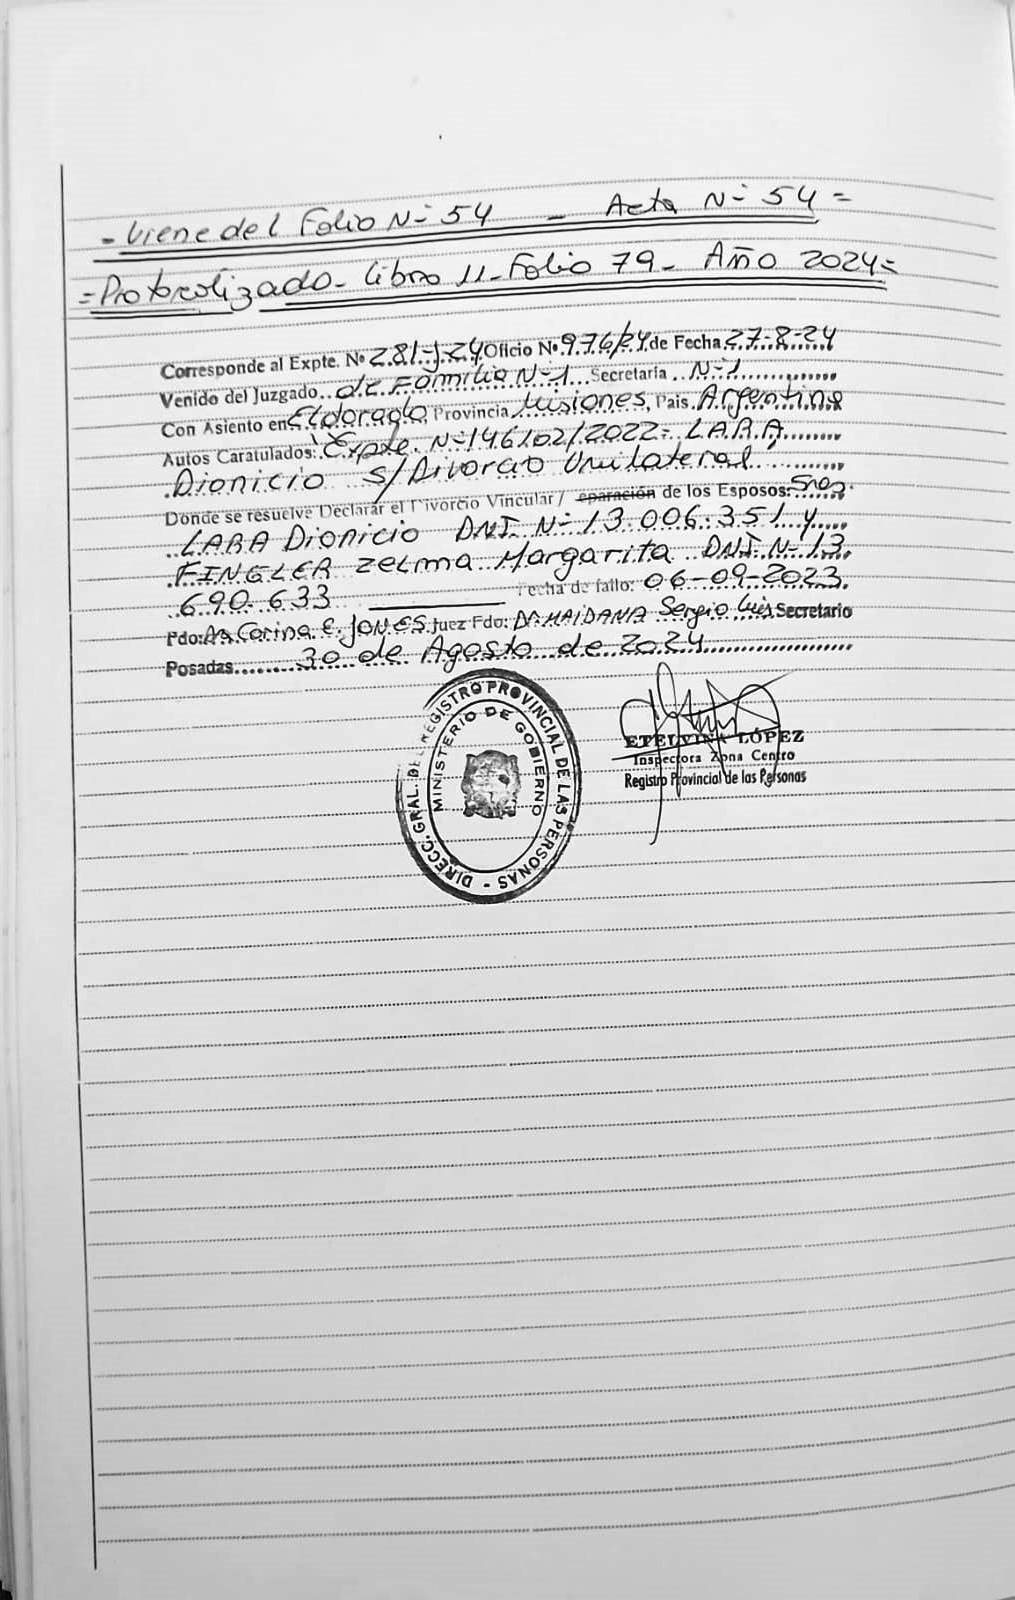 - Viene del Folio Nº 54 - Acta Nº 54 =
= Protocolizado - Libro 11 - Folio 79 - Año 2024 =
Corresponde al Expte. Nº 281-J-24 Oficio Nº 976/24 de Fecha 27-8-24
Venido del Juzgado de Familia Nº 1 Secretaría Nº 1
Con Asiento en Eldorado, Provincia Misiones, Pais Argentina
Autos Caratulados: "Expte. Nº 146102/2022- LARA
Dionicio s/Divorcio Unilateral
Donde se resuelve Declarar el Divorcio Vincular / eparación de los Esposos: Sres.
LARA Dionicio DNI Nº 13.006.351 y
FINGLER Zelma Margarita DNI Nº 13.
690.633 Fecha de fallo: 06-09-2023
Fdo: Carina E. JONES Juez Fdo: Dr. MAIDANA Sergio Luis Secretario
Posadas 30 de Agosto de 2024
DIRECC. GRAL. DEL REGISTRO PROVINCIAL DE LAS PERSONAS -
MINISTERIO DE GOBIERNO
ETELVINA LÓPEZ
Inspectora Zona Centro
Registro Provincial de las Personas